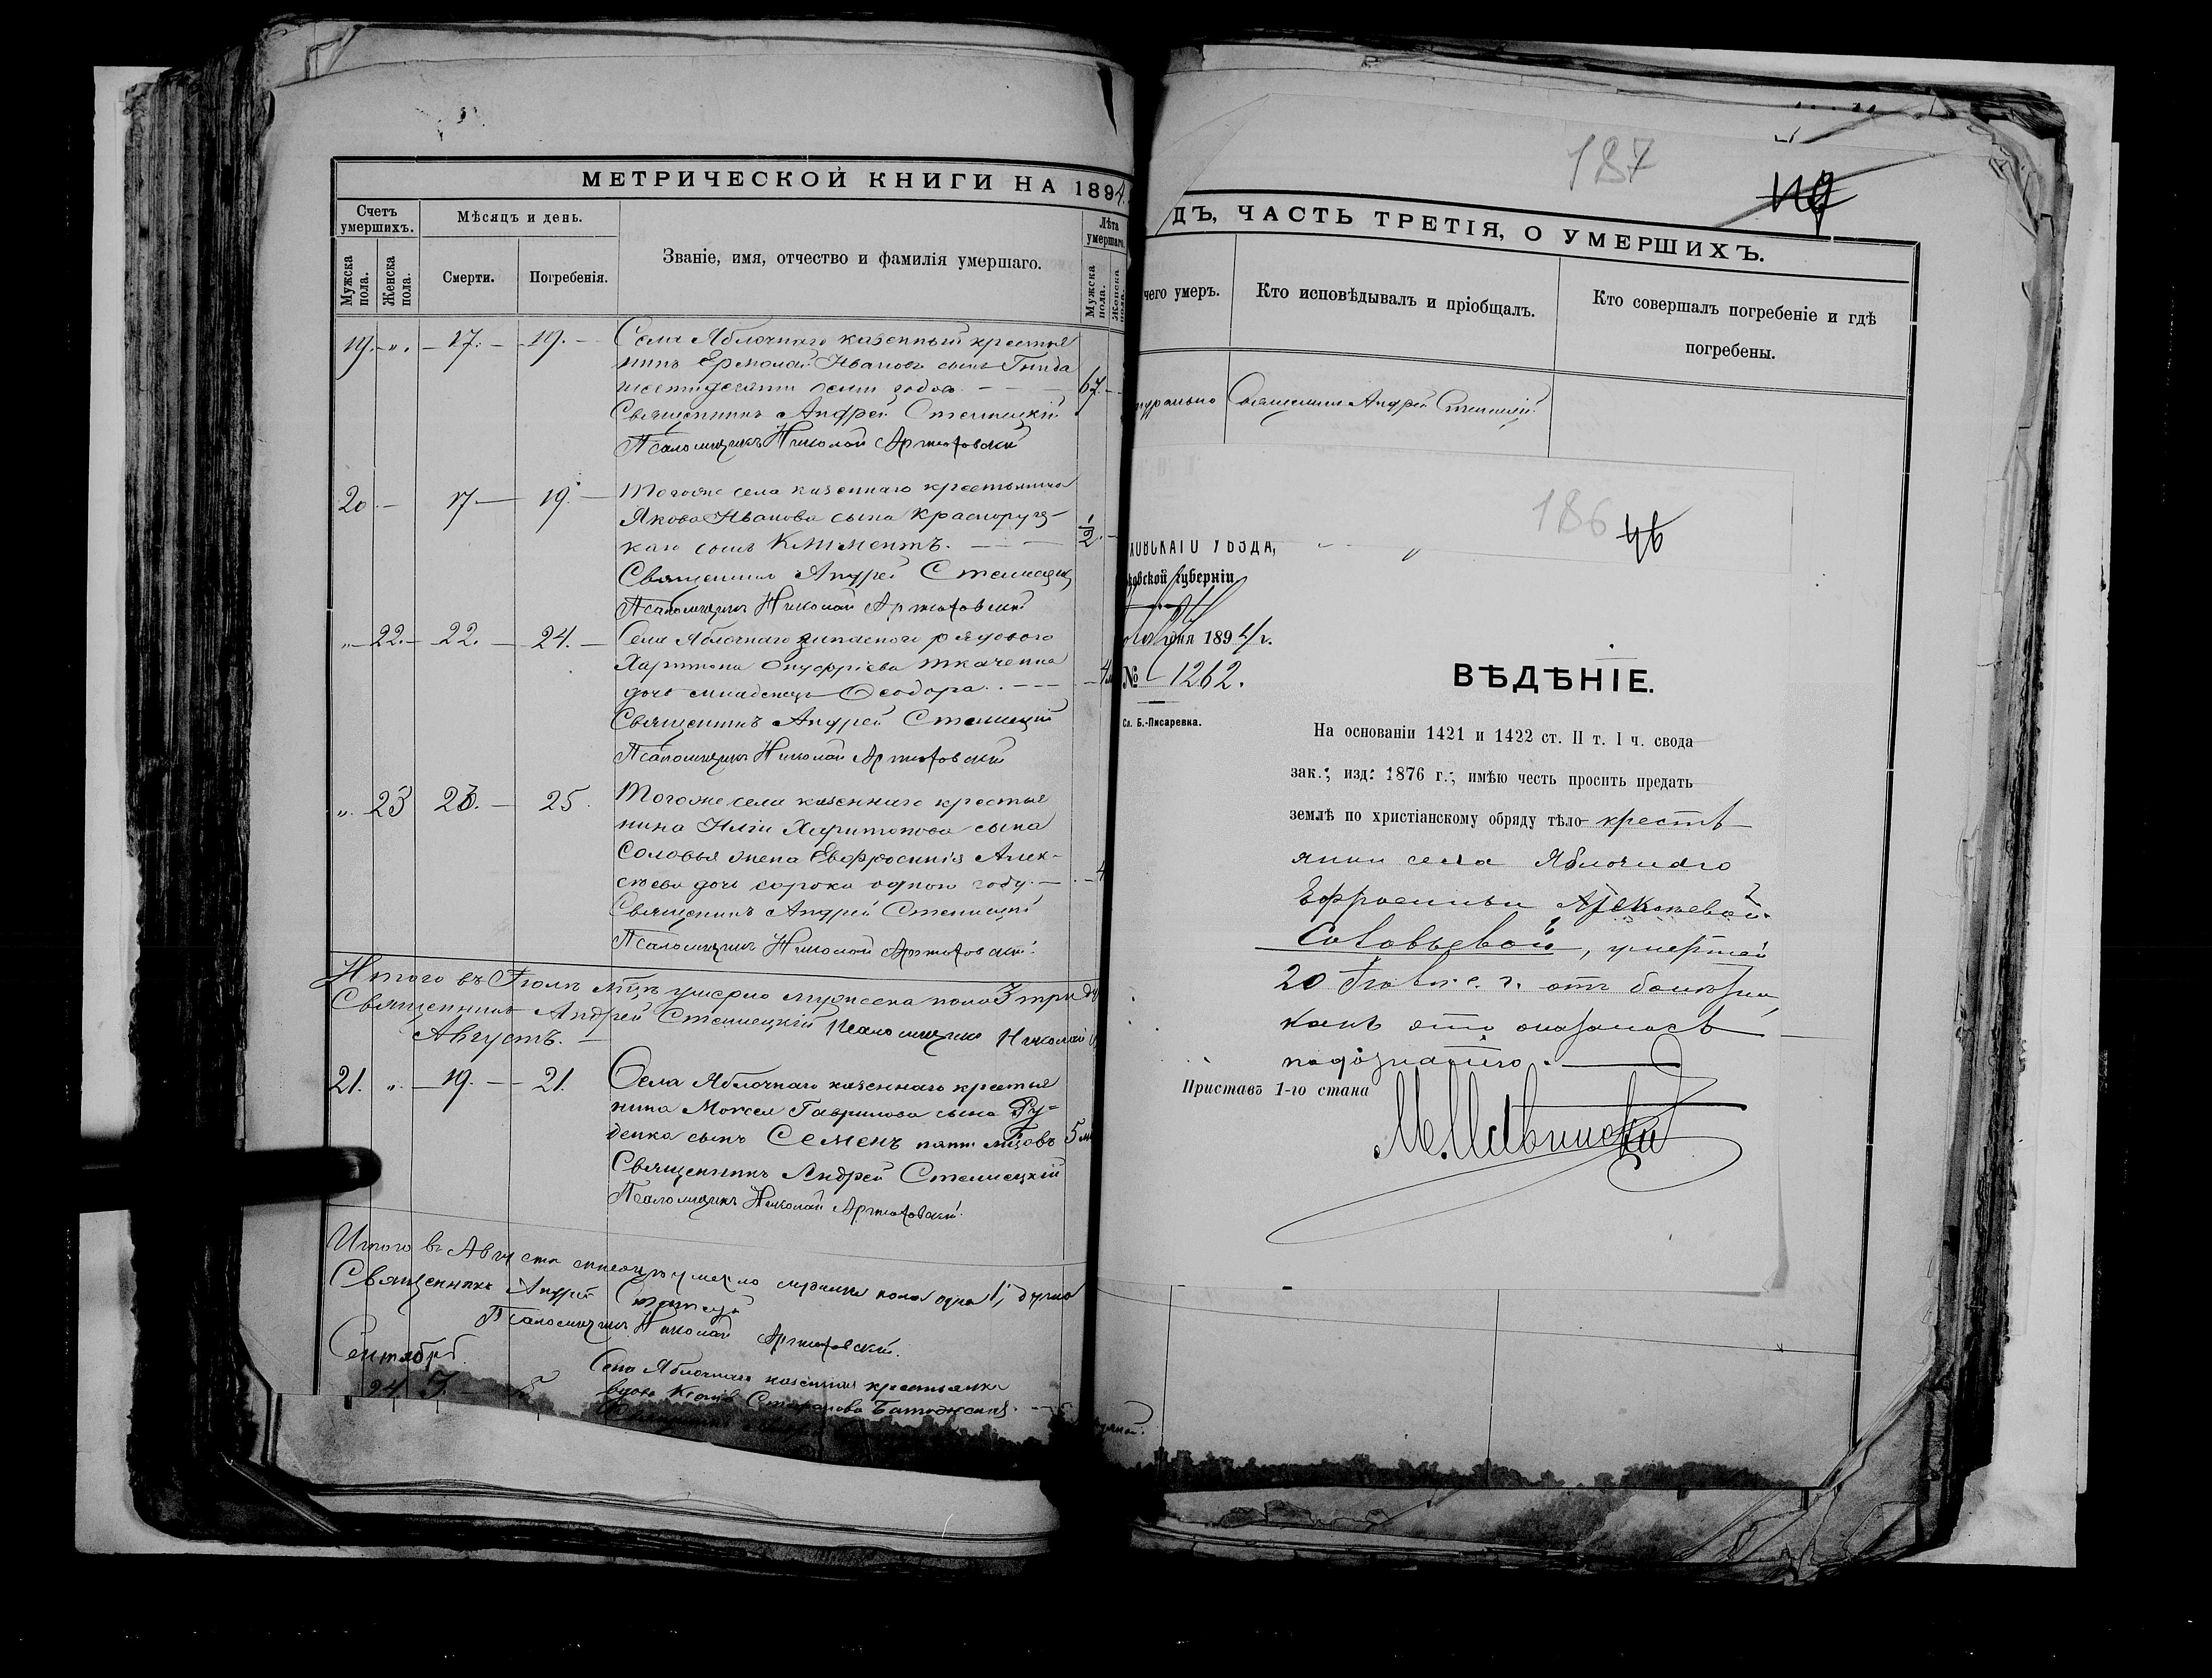 МЕТРИЧЕСКОЙ КНИГИ НА 1894
Счетъ умершихъ.
Мужска пола.
Женска пола.
Мѣсяцъ и день.
Смерти.
Погребенія.
Званіе, имя, отчество и фамилія умершаго.
Лѣта умершаго.
Мужска пола.
Женска пола.
19. " 17. 19. Села Яблочнаго казенный крестья
нинъ Ермолай Ивановъ сынъ Гнида
шестидесяти семи годов 67.
Священникъ Андрей Стеллецкій
Псаломщикъ Николай Артюховскій
20 17 19. Тогоже села казеннаго крестьянина
Якова Иванова сына Красноруц-
каго сынъ Климентъ. 1/2.
Священникъ Андрей Стеллецкій
Псаломщикъ Николай Артюховскій
" 22. 22. 24. Села Яблочнаго запаснаго рядового
Харитона Онуфріева Ткаченка
дочь младенецъ Ѳеодора.
Священникъ Андрей Стеллецкій
Псаломщикъ Николай Артюховскій
" 23 23. 25. Тогоже села казеннаго крестья
нина Иліи Харитонова сына
Соловья жена Евфросинія Алек-
сѣева дочь сорока одного году.
Священникъ Андрей Стеллецкій
Псаломщикъ Николай Артюховскій
Итого въ Іюлѣ м-цѣ умерло мужеска пола 3 три
Священникъ Андрей Стеллецкій Псаломщикъ Николай
Августъ.
21. " 19. 21. Села Яблочнаго казеннаго крестья
нина Моисея Гаврилова сына Ру=
денка сынъ Семенъ пяти м-цовъ 5 м
Священникъ Андрей Стеллецкій
Псаломщикъ Николай Артюховскій.
Итого въ Августѣ умерло мужеска пола 1,
Священникъ Андрей
Псаломщикъ Николай Артюховскій.
Сентябрь
24 3 5 Села Яблочнаго казенная крестьянка
вдова Стефанова
187
ДЪ, ЧАСТЬ ТРЕТІЯ, О УМЕРШИХЪ.
чего умеръ.
Кто исповѣдывалъ и пріобщалъ.
Кто совершалъ погребеніе и гдѣ
погребены.
Священникъ Андрей Стеллецкій
186
46
ХОВСКАГО УѢЗДА,
ковской губерніи
дня 1894 г.
№ 1262.
Сл. Б.-Писаревка.
ВѢДѢНІЕ.
На основаніи 1421 и 1422 ст. II т. I ч. свода
зак.; изд: 1876 г.; имѣю честь просить предать
землѣ по христіанскому обряду тѣло крестъ
янки села Яблочнаго
Ефросиньи Алексѣевой
Соловьевой, умершей
20 Іюля с. г. отъ болѣзни
какъ это оказалось
по дознанію.
Приставъ 1-го стана